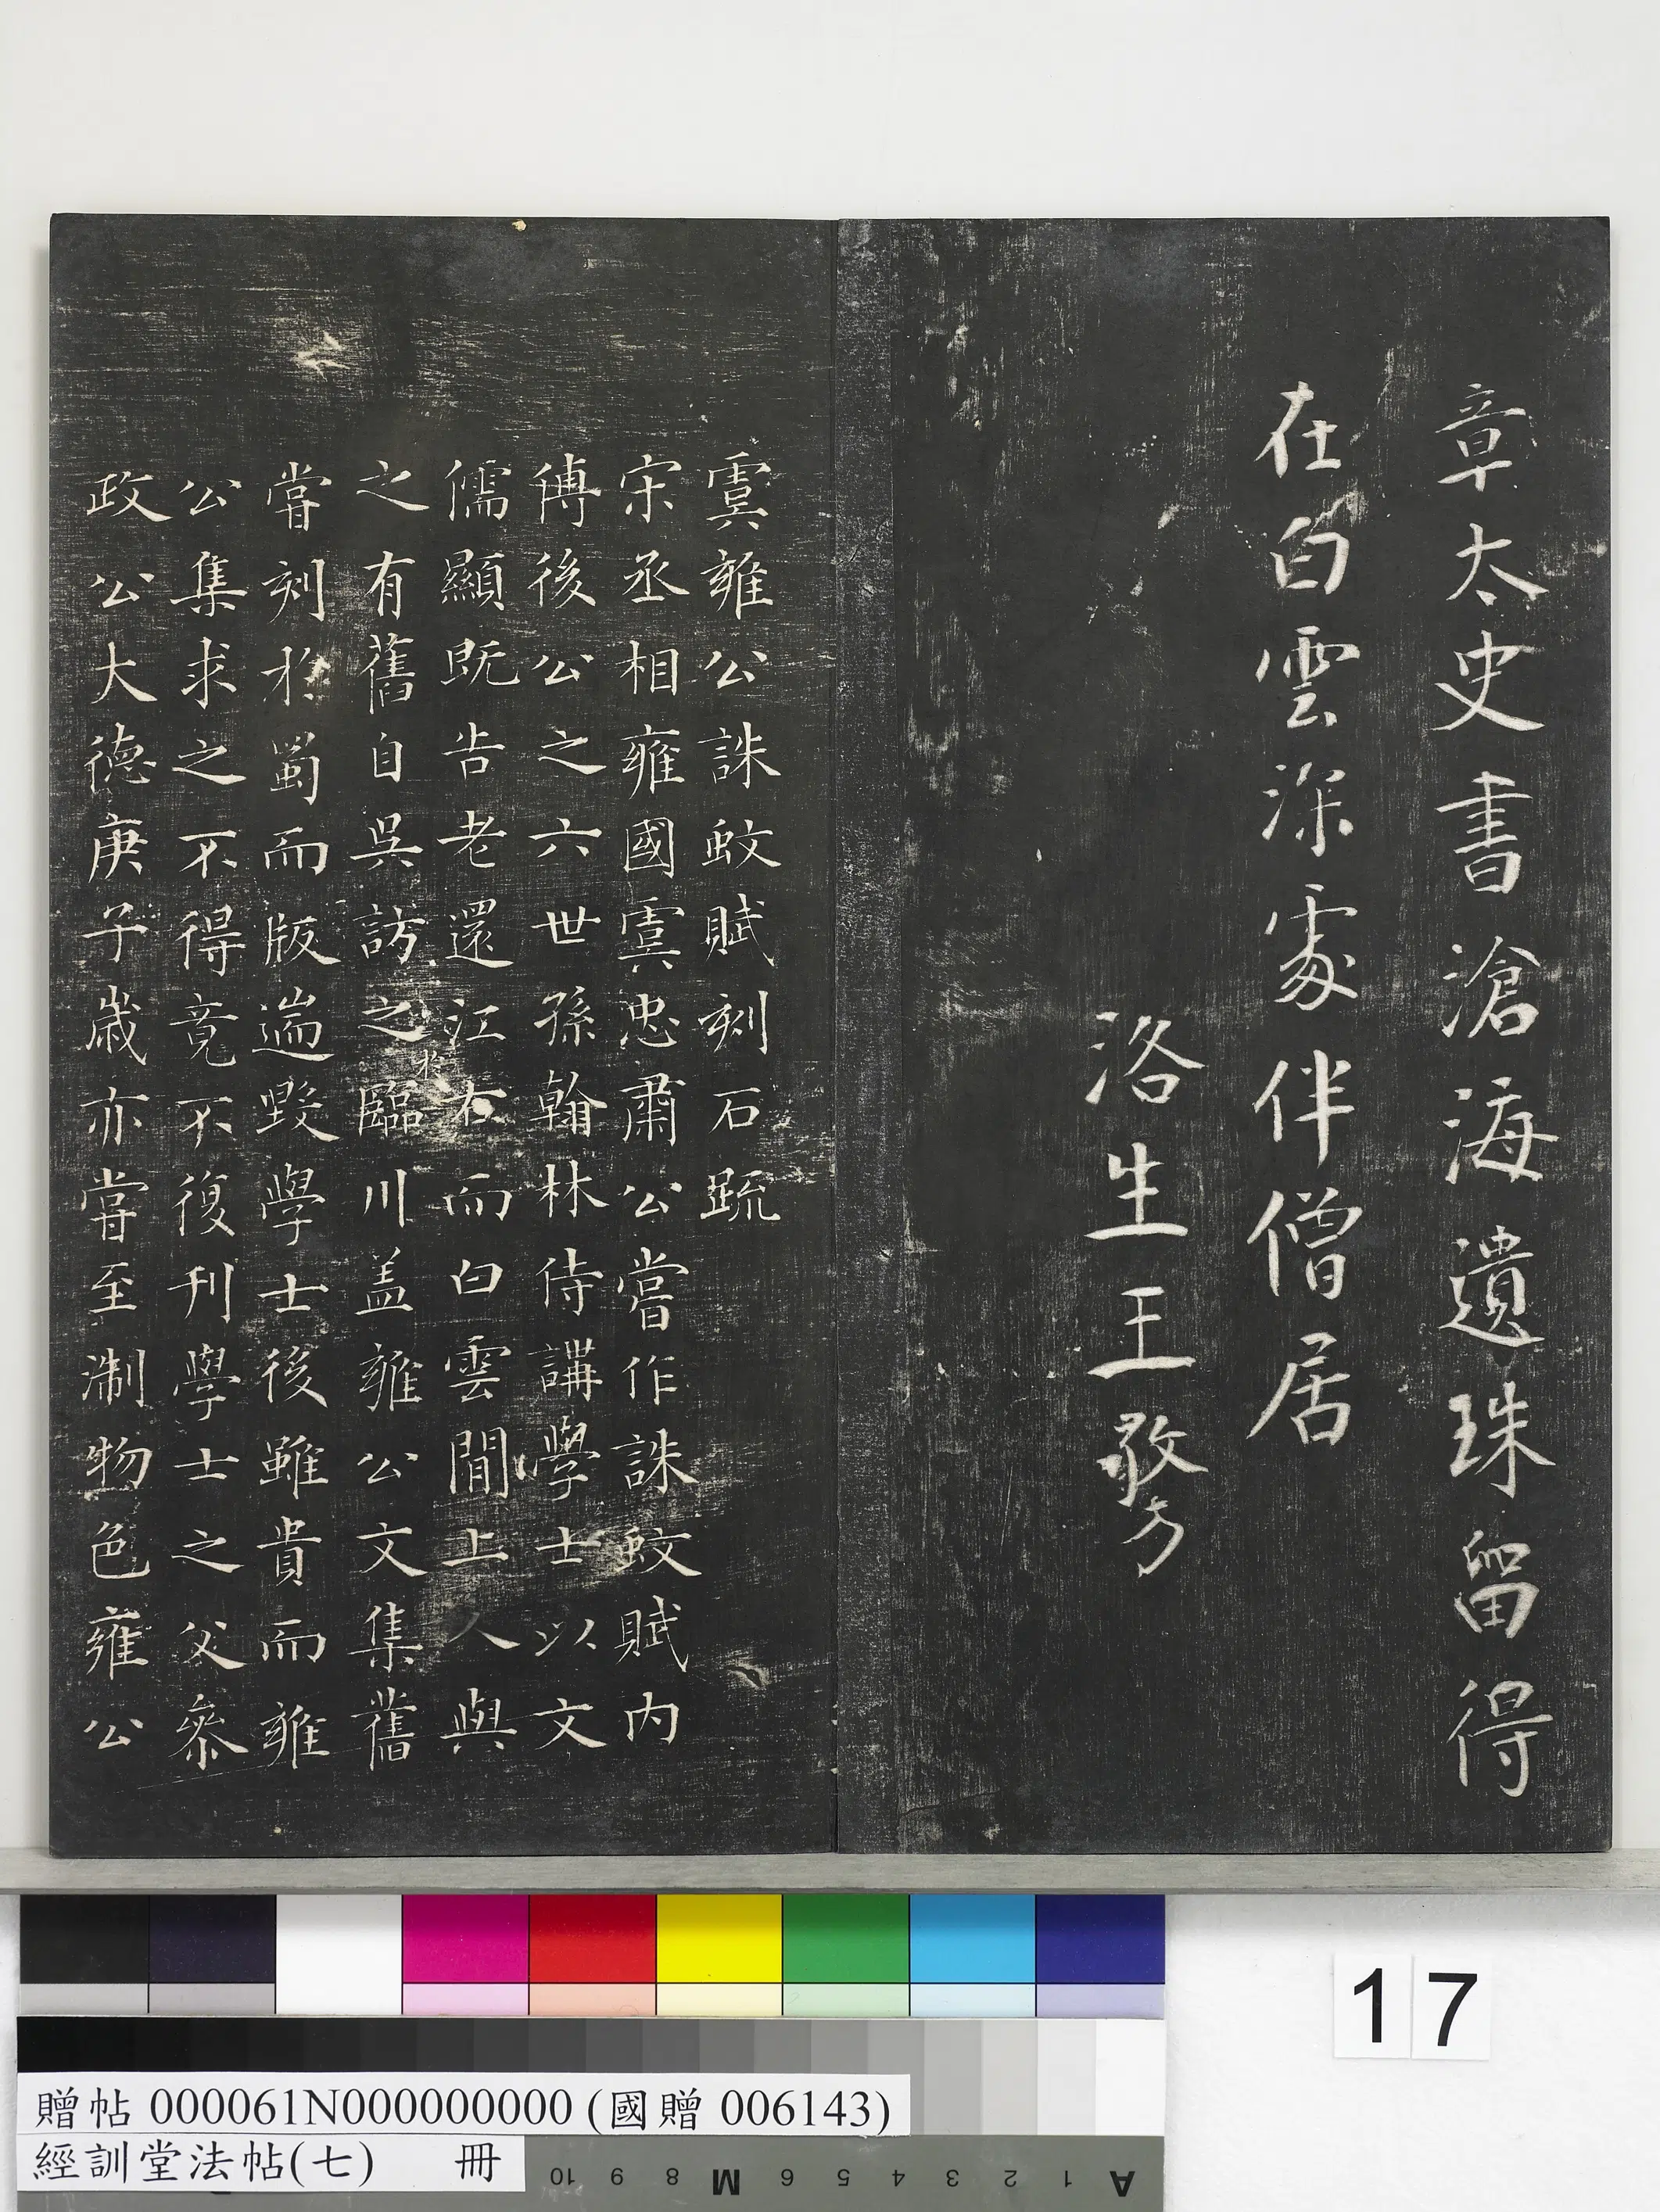 章太史書滄海遺珠留得
在白雲深處伴僧居
洛生王㪍
虞雍公誅蚊賦刻石疏
宋丞相雍國虞忠肅公嘗作誅蚊賦內
傅後公之六世孫翰林侍講學士以文
儒顯既告老還江右而白雲閒上人與
之有舊自吳訪之於臨川盖雍公文集舊
嘗刻於蜀而版遄毀學士後雖貴而雍
公集求之不得竟不復刊學士之父參
政公大德庚子歲亦嘗至淛物色雍公
17
贈帖 000061N000000000 (國贈 006143)
經訓堂法帖(七) 冊
10 9 8 M 6 5 4 3 2 1 A